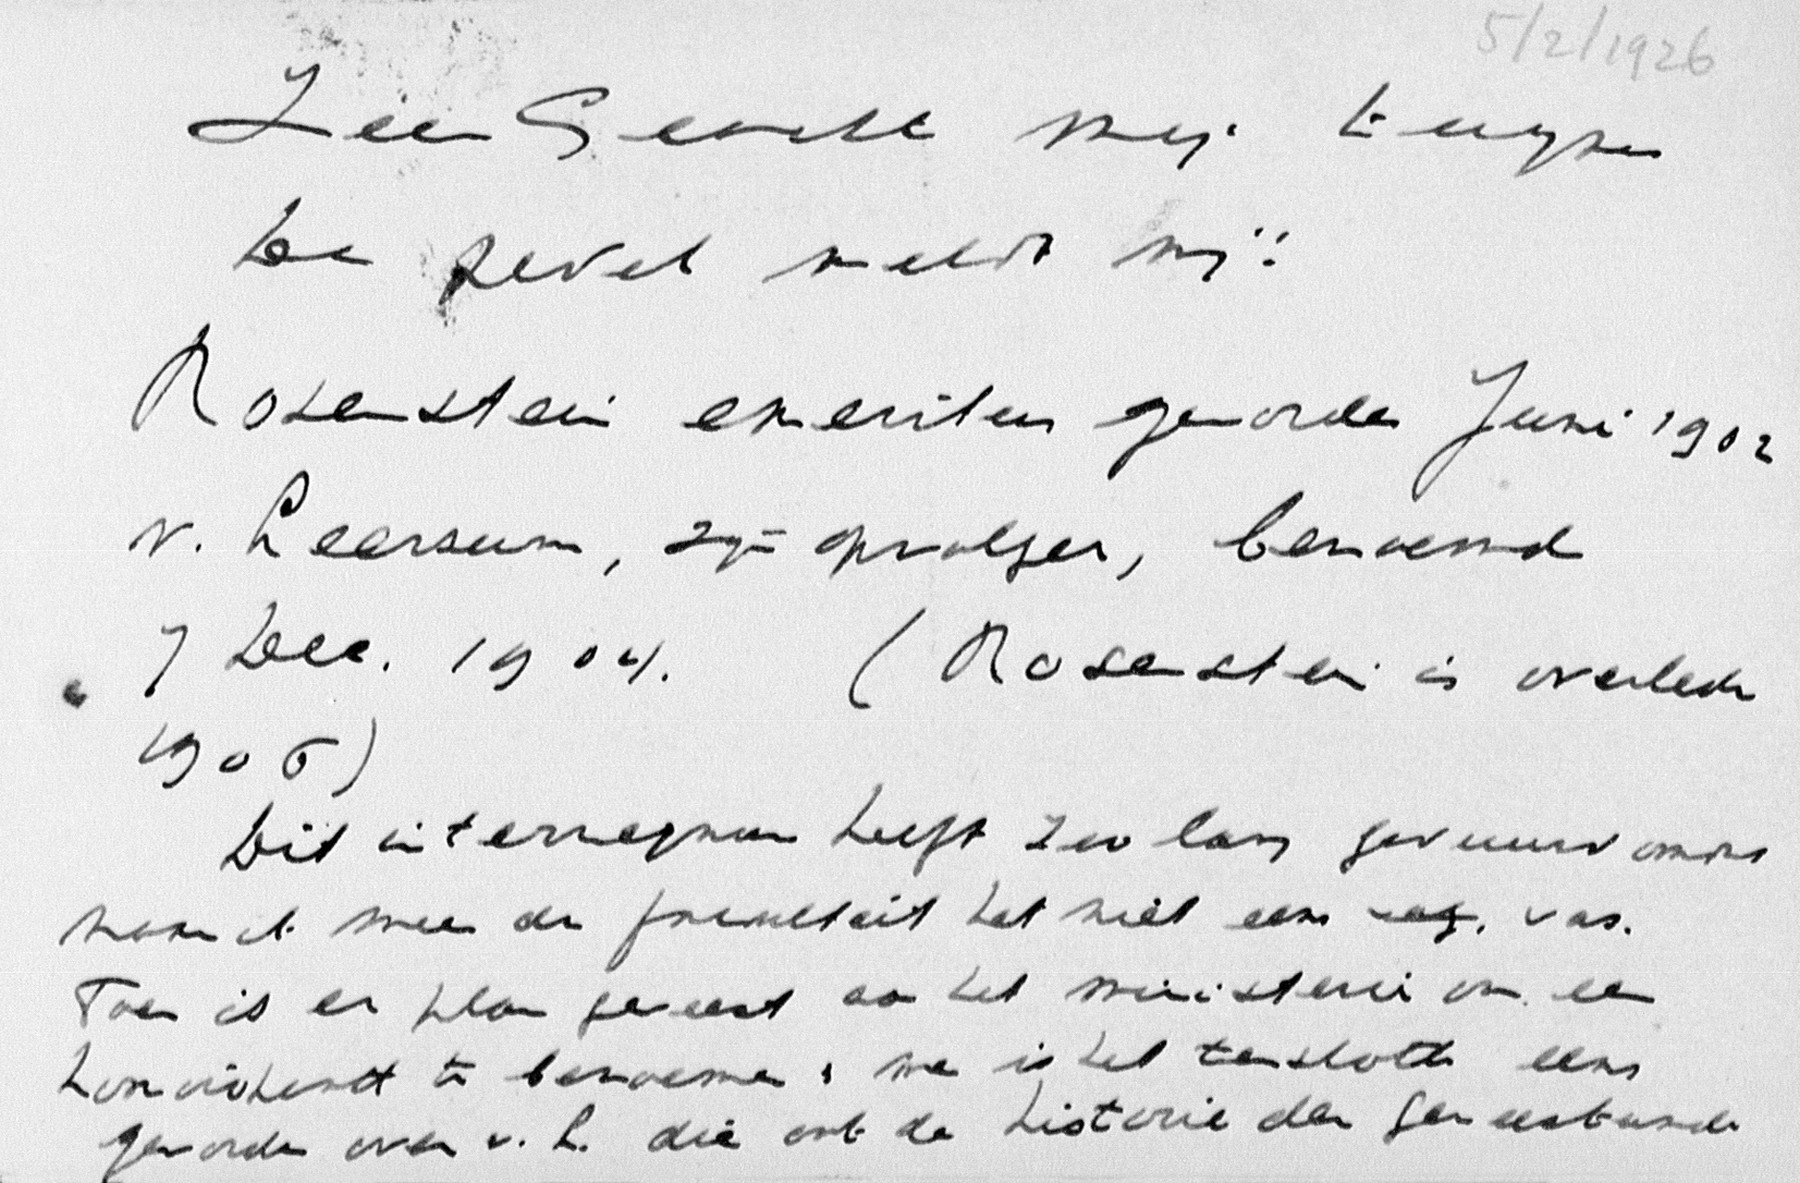 5/2/1926
Zeer Geachte Mej. Tuyn
De pedel meldt mij:
Rosenstein emeritus geworden Juni 1902
v. Leersum, zijn opvolger, benoemd
7 Dec. 1904. (Rosenstein is overleden
1906)
Dit interregnum heeft zoo lang geduurd omdat
men de faculteit het niet eens was.
Toen is er plan geweest aan het ministerie om een
homoiopaat te benoemen; men is het tenslotte eens
geworden over v. L. die ook de historie der geneeskunde